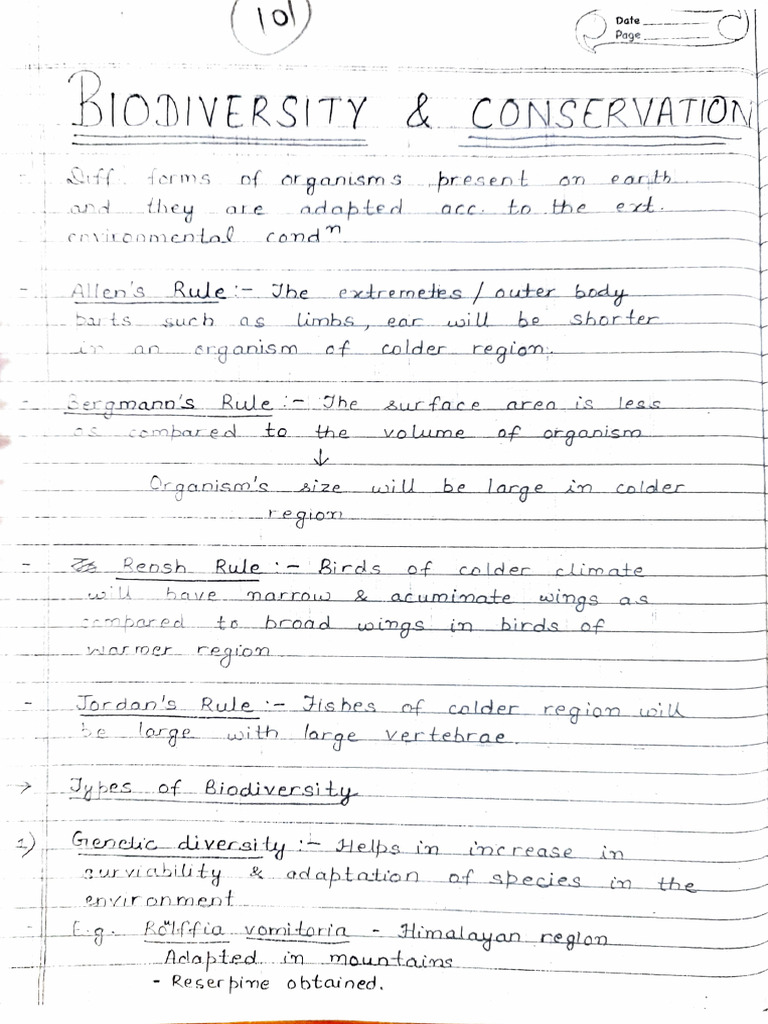 101
Date
Page
BIODIVERSITY & CONSERVATION
Diff forms of organisms present on earth
and they are adapted acc. to the ext.
environmental condⁿ
- Allen's Rule :- The extremetes / outer body
parts such as limbs, ear will be shorter
in an organism of colder region.
- Bergmann's Rule :- The surface area is less
as compared to the volume of organism
↓
Organism's size will be large in colder
region
- Rensh Rule :- Birds of colder climate
will have narrow & acuminate wings as
compared to broad wings in birds of
warmer region
- Jordan's Rule :- Fishes of colder region will
be large with large vertebrae
→ Types of Biodiversity
1) Genetic diversity :- Helps in increase in
surviability & adaptation of species in the
environment
- E.g. vomitoria - Himalayan region
Adapted in mountains
- Reserpine obtained.